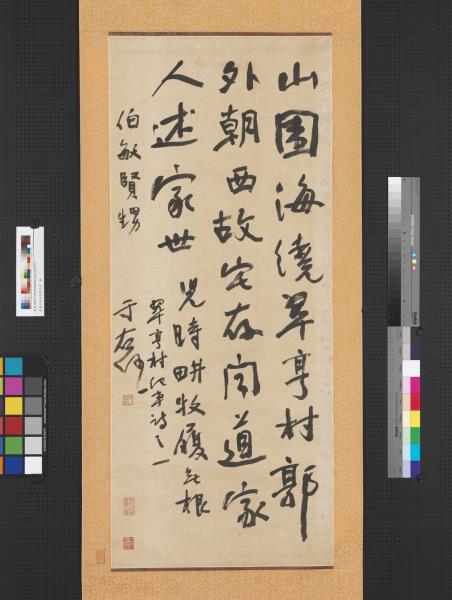 山圍海繞翠亨村郭
外朝西故宅存聞道家
人述家世
兒時畊牧履无根
翠亨村紀事詩之一
伯敏賢甥
于右任